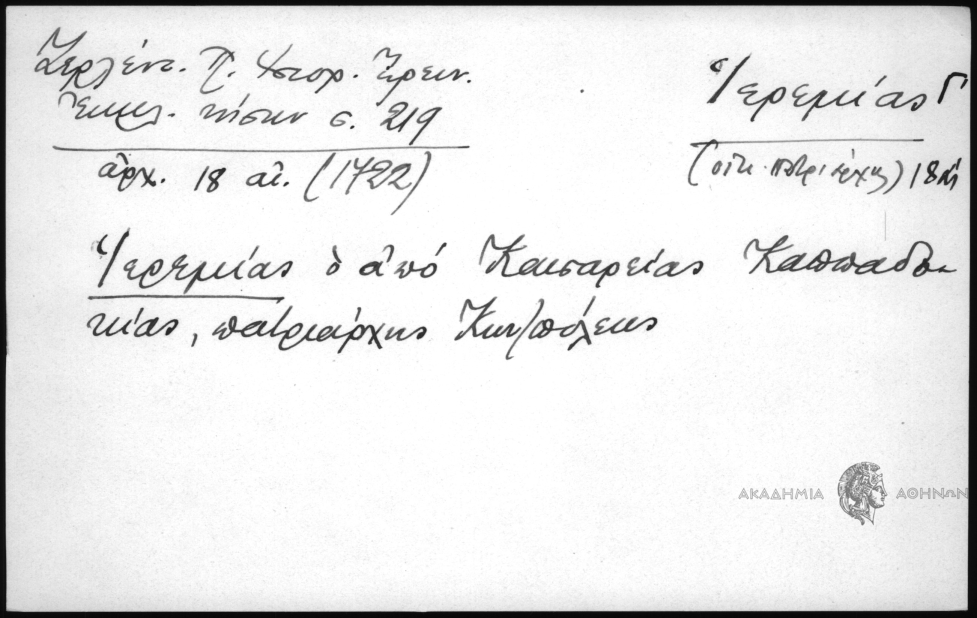 Ζερλέντ. Π. Ἱστορ. Ἔρευν.
Ἐκκλ. νήσων σ. 219
ἀρχ. 18 αἰ. (1722)
Ἱερεμίας Γ'
(οἰκ. πατριάρχης) 18 αἰ
Ἱερεμίας ὁ ἀπό Καισαρείας Καππαδο-
κίας, πατριάρχης Κων/πόλεως
ΑΚΑΔΗΜΙΑ ΑΘΗΝΩΝ